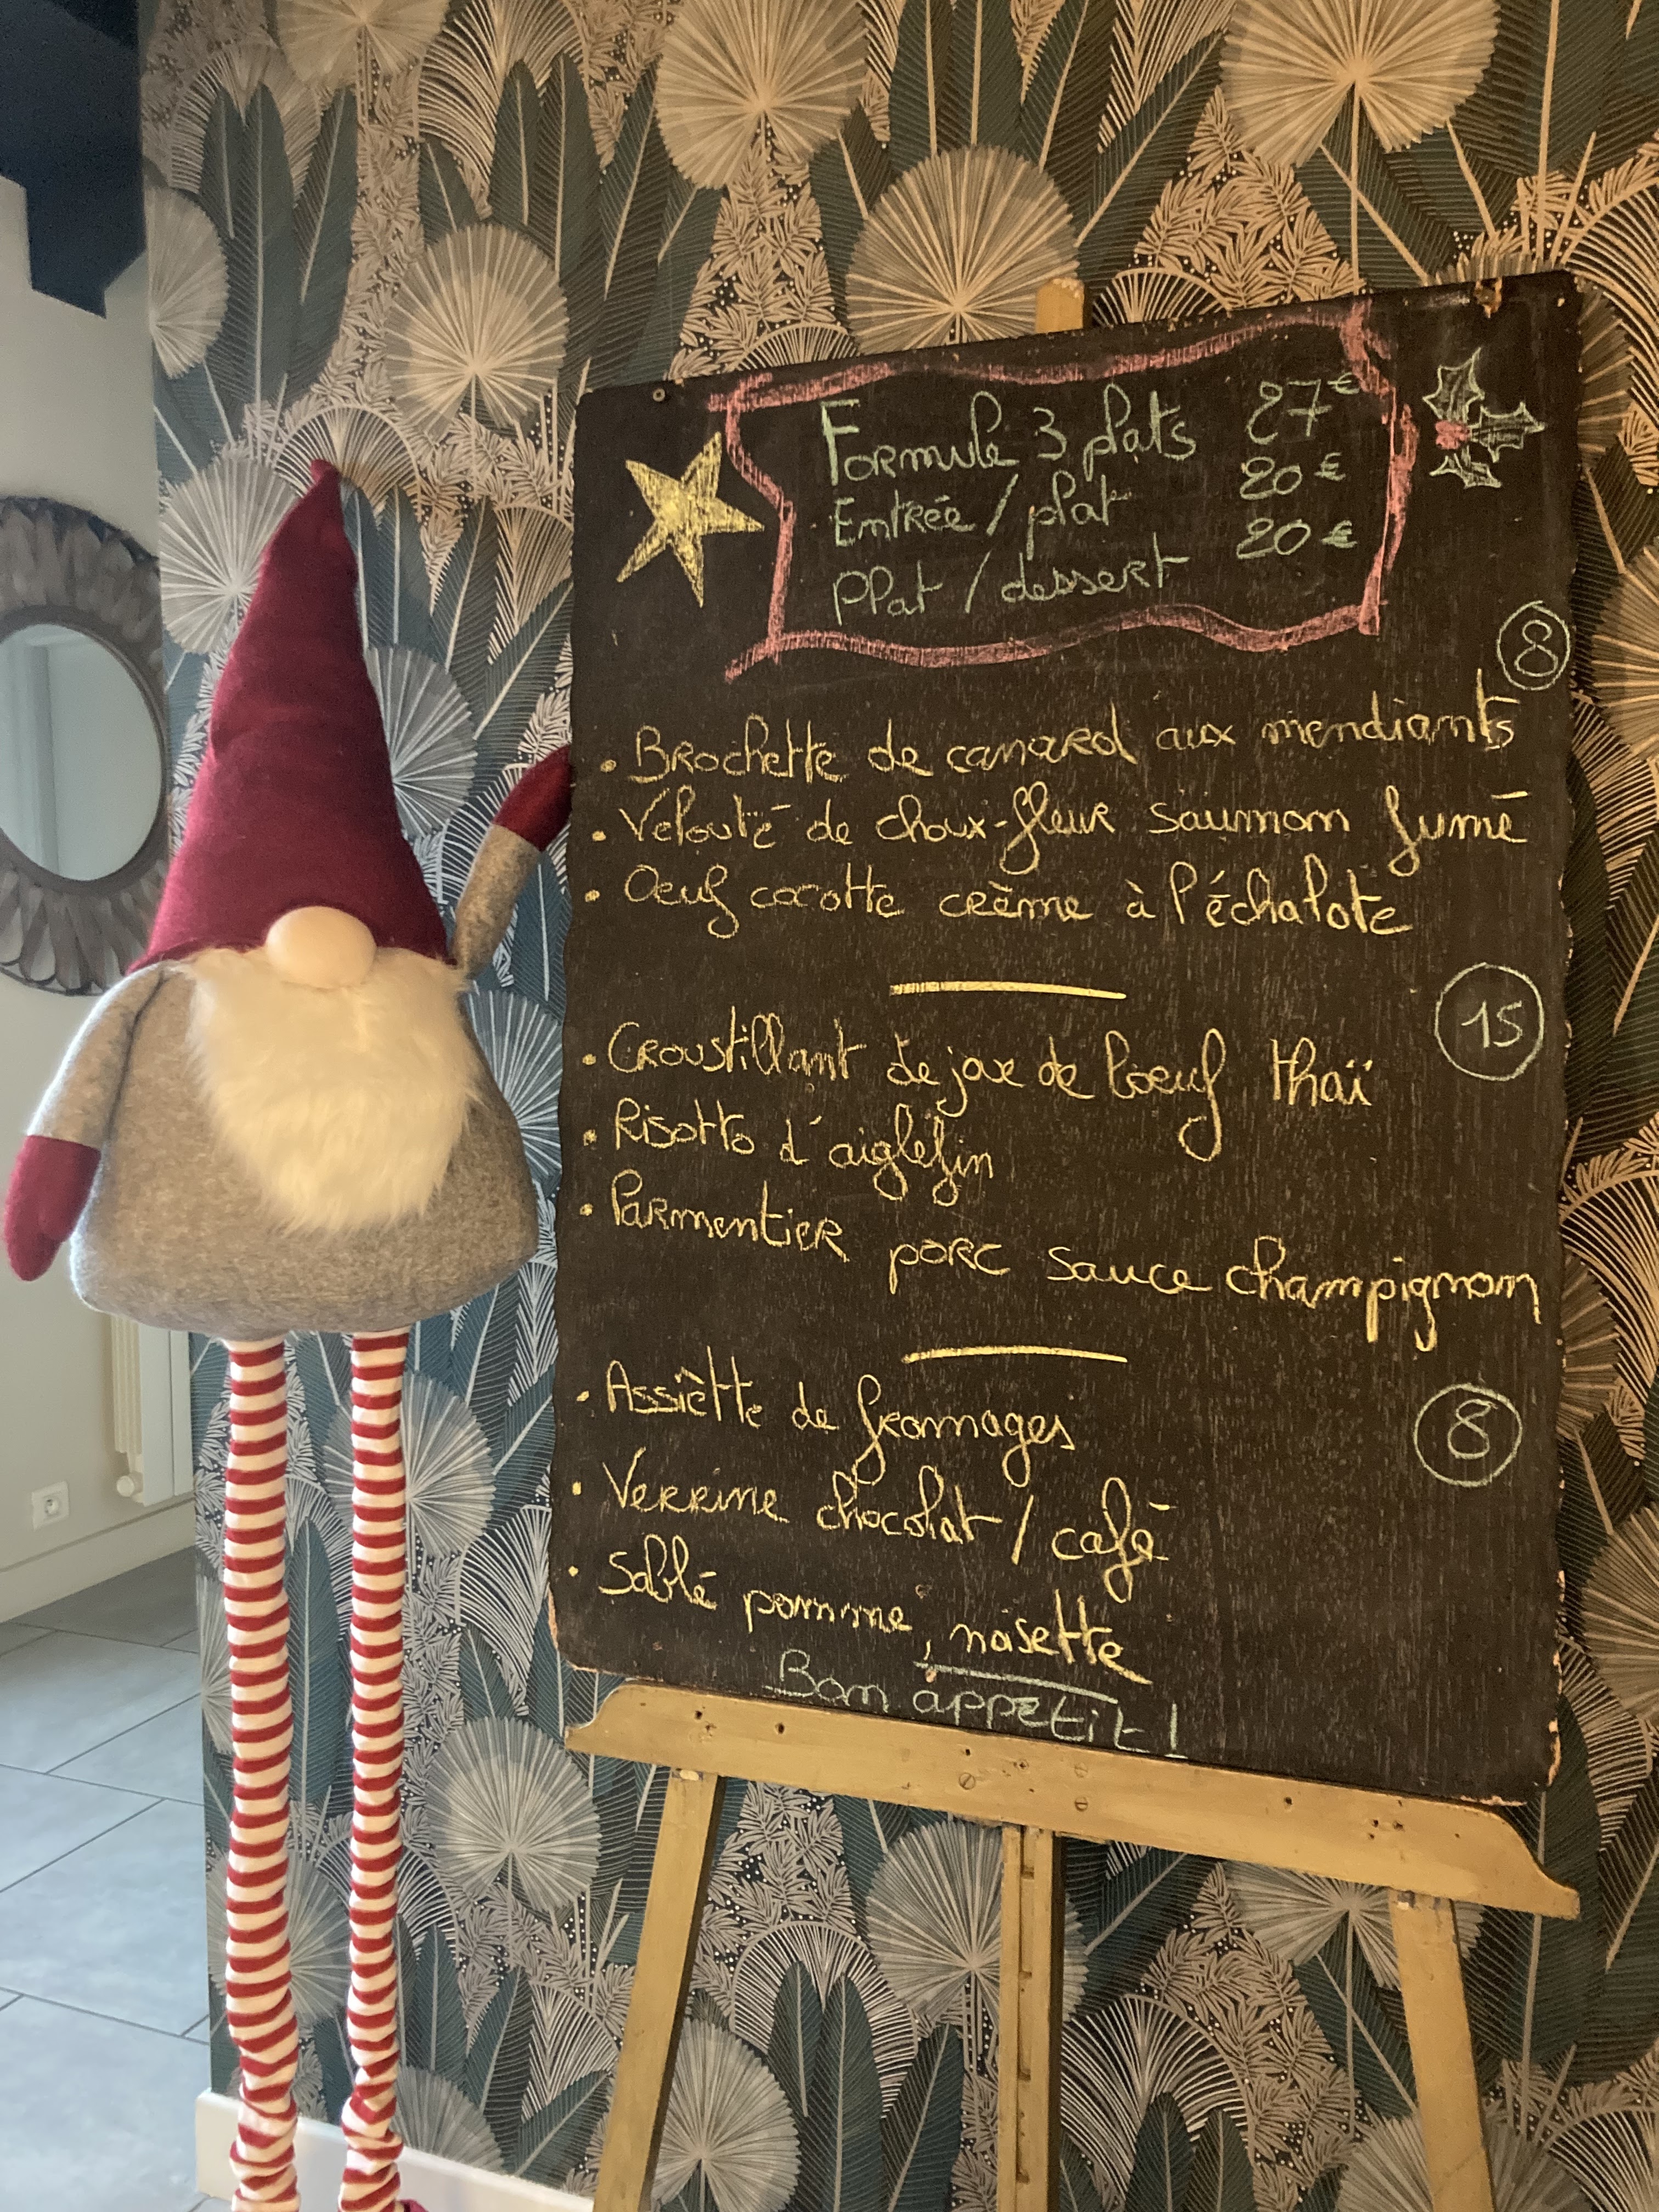 Formule 3 plats 27€
Entrée / plat 20€
Plat / dessert 20€
8
• Brochette de canard aux mendiants
• Velouté de choux-fleur saumon fumé
• Oeuf cocotte crème à l'échalote
15
• Croustillant de joue de boeuf thaï
• Risotto d'aiglefin
• Parmentier porc sauce champignon
8
• Assiètte de fromages
• Verrine chocolat / café
• Sablé pomme, noisette
Bon appétit !